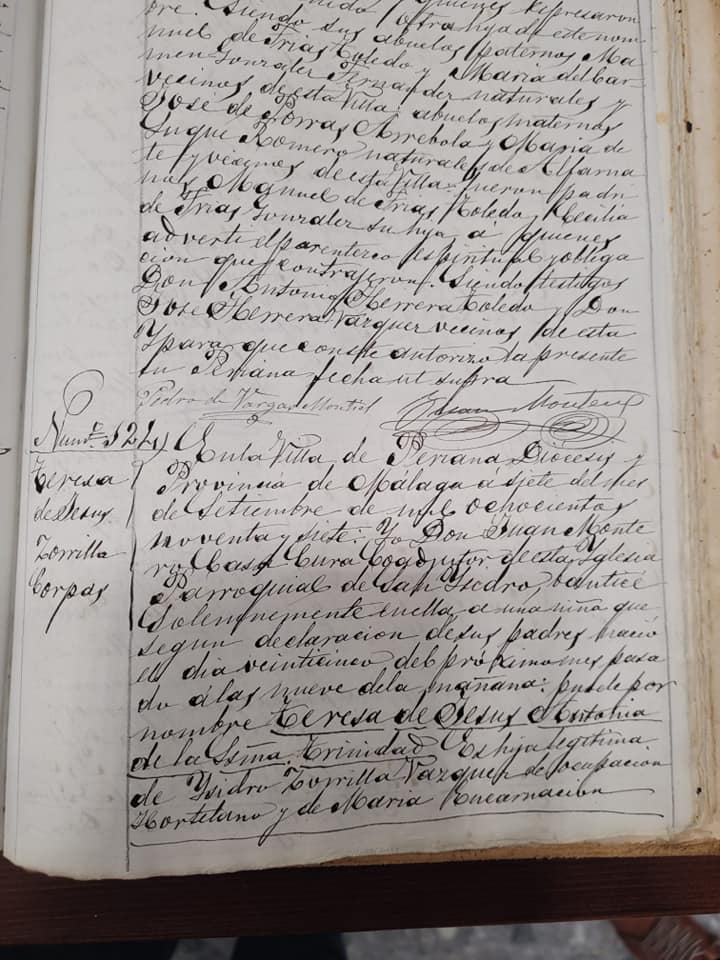 quienes expresaron
bre. Siendo sus abuelos paternos Ma
nuel de Frias Toledo y Maria del Car
men Gonzalez Fernandez naturales y
vecinos de esta Villa: abuelos maternos
Jose de Porras Arrebola y Maria de
Luque Romero naturales de Alfarna
te y vecinos de esta Villa: fueron padri
nos Manuel de Frias Toledo y Cecilia
de Frias Gonzalez su hija á quienes
adverti el parentezco espiritual y obliga
cion que contrajeron. Siendo testigos
Don Antonio Herrera Toledo y Don
Jose Herrera Vazquez vecinos de esta
Y para que conste autorizo la presente
en Periana fecha ut supra
Pedro de Vargas Montiel Juan Montero
Num.º 124
Teresa
de Jesus
Zorrilla
Corpas
En la Villa de Periana Diocesis y
Provincia de Málaga á siete del mes
de Setiembre de mil ochocientos
noventa y siete: Yo Don Juan Monte
ro Cura Coadjutor de esta Yglesia
Parroquial de San Ysidro, bautice
solemnemente en ella, a una niña que
segun declaracion de sus padres nació
el dia veinticinco del próximo mes pasa
do á las nueve de la mañana: puse le por
nombre Teresa de Jesus Antonia
de la Ssma. Trinidad. Es hija legitima
de Ysidro Zorrilla Vazquez de ocupacion
Hortelano y de Maria Encarnacion